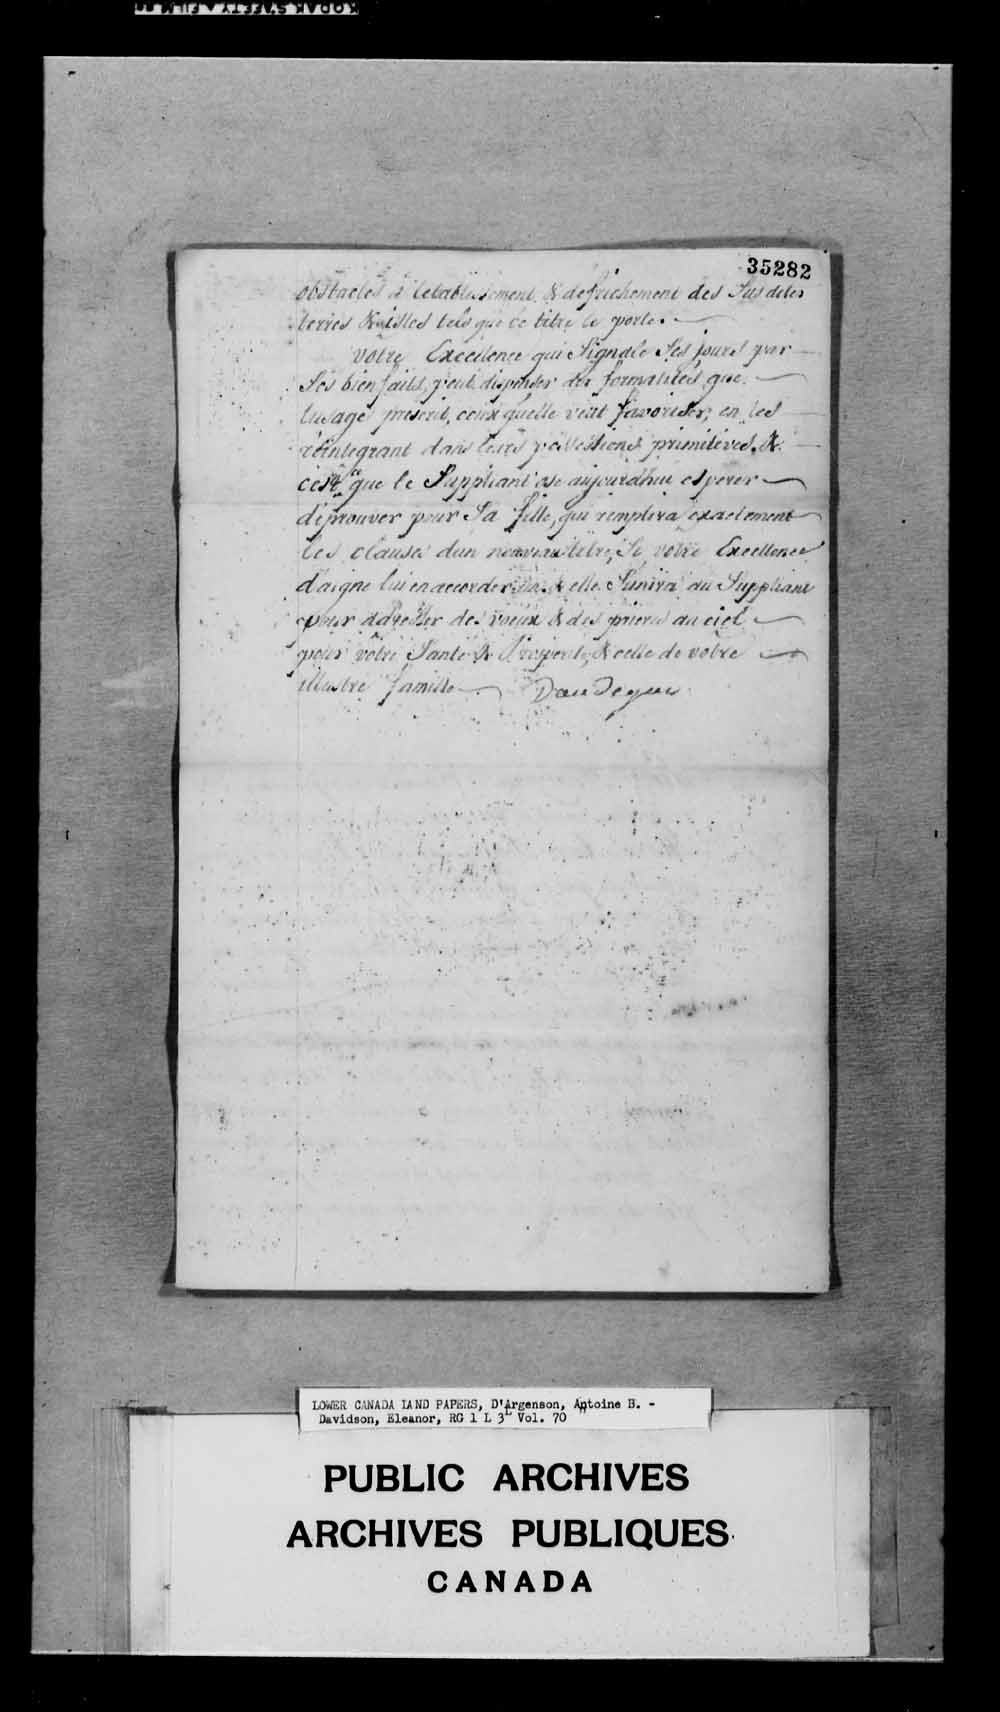 35282
obstacles a letablissement & defrichement des Susdites
terres & isles tels que le titre le porte.
votre Excellence qui Signale Ses jours par
Ses bienfaits, peut dispenser des formalités, que
lusage prescrit, ceux quelle veut favoriser; en les
reintegrant dans leurs possessions primitives. &
cest ce que le Suppliant ose aujourdhui esperer
déprouver pour Sa fille, qui remplira exactement
les clauses dun nouveau titre, Si votre Excellence
daigne lui en accorder un. & elle Sunira au Suppliant
pour adresser des voeux & des prieres au ciel
pour votre Santé & prosperité, & celle de votre
illustre famille
LOWER CANADA LAND PAPERS, D'Argenson, Antoine B. -
Davidson, Eleanor, RG 1 L 3L Vol. 70
PUBLIC ARCHIVES
ARCHIVES PUBLIQUES
CANADA